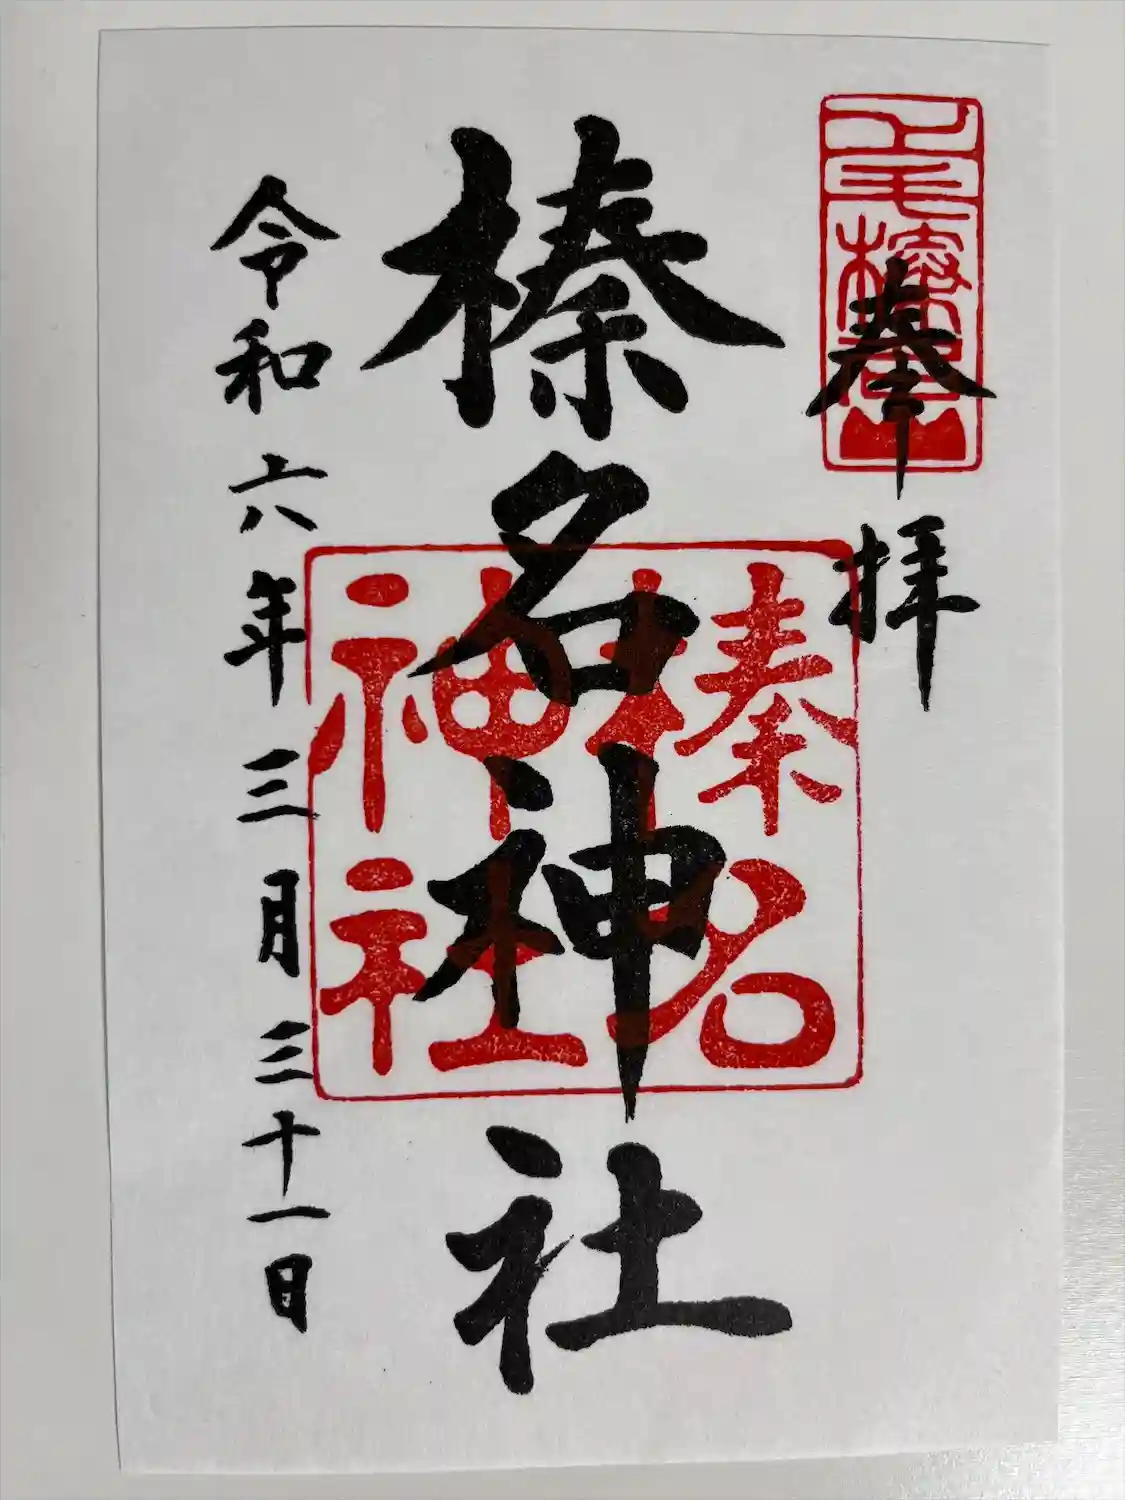 上毛榛名山
奉拝
榛名神社
榛名
神社
令和六年三月三十一日